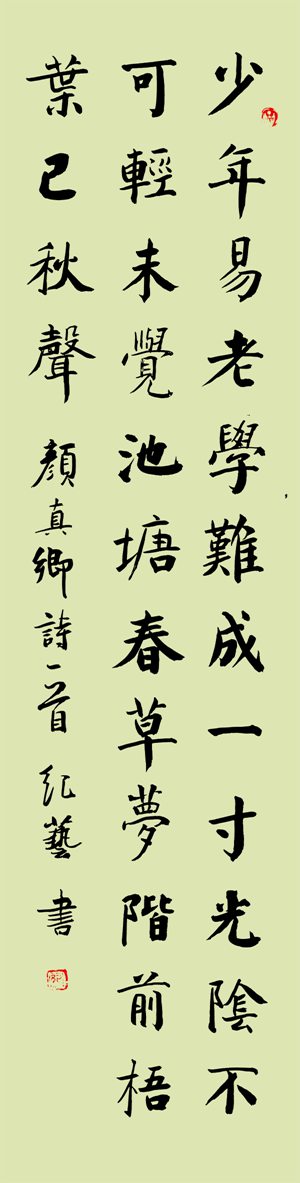 少年易老學難成一寸光陰不
可輕未覺池塘春草夢階前梧
葉已秋聲 顏真卿詩一首 紀藝書